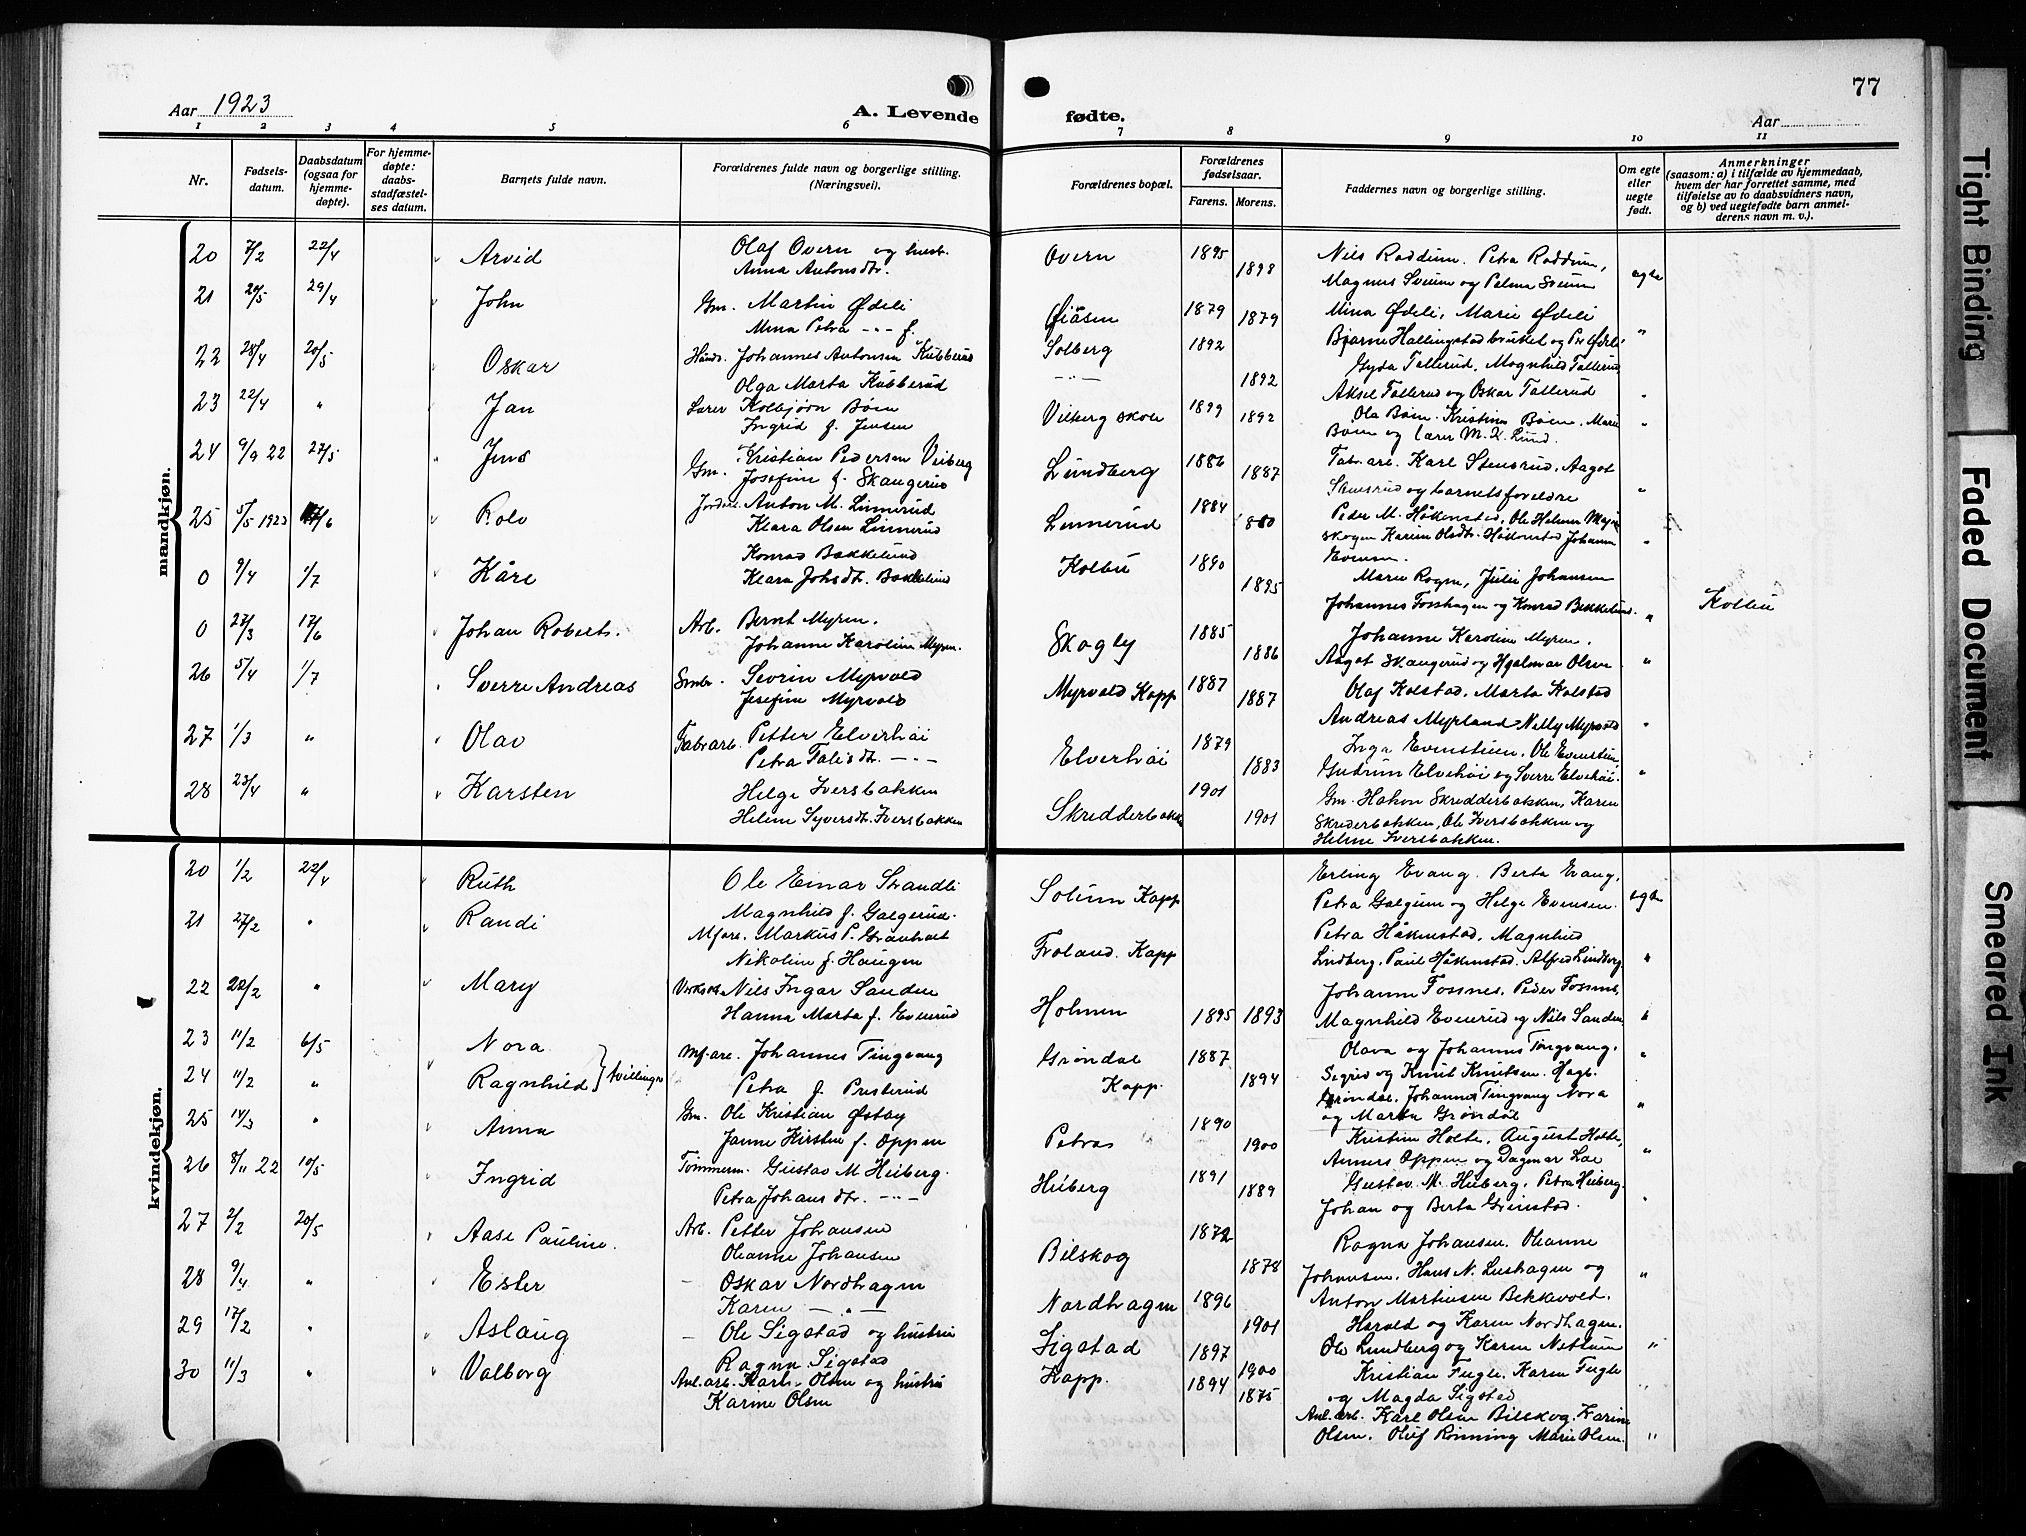 77
Aar 1923
A. Levende fødte.
Aar
1 2 3 4 5 6 7 8 9 10 11
Nr.
Fødsels-
datum.
Daabsdatum
(ogsaa for
hjemme-
døpte).
For hjemme-
døpte:
daabs-
stadfæstel-
ses datum.
Barnets fulde navn.
Forældrenes fulde navn og borgerlige stilling.
(Næringsvei).
Forældrenes bopæl.
Forældrenes
fødselsaar.
Farens. Morens.
Faddernes navn og borgerlige stilling.
Om egte
eller
uegte
født.
Anmerkninger
(saasom: a) i tilfælde av hjemmedaab,
hvem der har forrettet samme, med
tilføielse av to daabsvidners navn,
og b) ved uegtefødte barn anmel-
derens navn m. v.).
mandkjøn.
20 7/2 22/4 Arvid Olaf Overn og hust. Overn 1895 Nils Roddum. Petra Roddum,
Anna Antonsdtr. 1898 Magnus Sveum og Palma Sveum egte
21 29/4 John Gm. Martin Ødeli Øiåsen 1879 1879 Mina Ødeli, Marie Ødeli
Mina Petra -"- f. "
22 28/4 20/5 Oskar Johannes Antonsen Kubberud Solberg 1892 Bjarne Hallingstadbruket og Per Ødeli
Olga Marta Kubberud -"- 1892 Gyda Tallerud, Magnhild Tallerud
23 22/4 " Jan Lærer Kolbjørn Bøen Vilberg skole 1899 1892 Aksel Tallerud og Oskar Tallerud "
Ingrid f. Jensen Ola Bøen. Kristine Bøen, Marie
Bøen og lærer M. K. Lund. "
24 9/9 22 27/5 Jens Gm. Kristian Pedersen Veiberg Lundberg 1886 1887 Fabr.arb. Karl Stensrud, Aagot
Josefine f. Skangerud Stensrud og barnets foreldre "
25 5/5 1923 Rolv Anton M. Linnerud Linnerud 1884 1880 Peder M. Håkenstad, Ole Helmer
Klara Olsen Linnerud skogen Karine Olsdtr. Håkenstad Johann "
Evensen.
0 9/4 1/7 Kåre Konrad Bakkelund Kolbu 1890 Marie Rogne, Julie Johansen
Klara Johsdtr. Bakkelund 1895 Johannes Fosshagen og Konrad Bekkelund. " Kolbu
0 27/3 17/6 Johan Robert. Arb. Bernt Myren. Skogly 1885 Johanne Karoline Myren.
Johanne Karoline Myren. 1886 Aagot Skangerud og Hjalmar Olsen "
26 5/4 1/7 Sverre Andreas Smbr. Sevrin Myrvold Myrvold Kapp 1887 1887 Olaf Kolstad, Marta Kolstad
Josefine Myrvold Andreas Myrland Nelly Myrvold "
27 1/3 " Olav Fabr.arb. Petter Elverhøi Elverhøi 1879 Inga Evenstuen, Ole Evenstuen,
Petra Falisdtr. -"- 1883 Gudrun Elvehøi og Sverre Elvehøi. "
28 23/4 " Karsten Helge Iversbakken Skredderbakken 1901 Gm. Hakon Skredderbakken, Karen
Helene Syversdtr. Iversbakken 1901 Skrederbakken, Ole Iversbakken og
Helene Iversbakken.
kvindekjøn.
20 1/2 22/4 Ruth Ole Einar Strandli Solum Kapp Erling Evang. Berta Evang,
Magnhild f. Galgerud. Petra Galgum og Helge Evensen. egte
21 27/2 " Randi Mfarb. Markus P. Granholt Froland. Kapp Petra Håkenstad, Magnhild
Nikoline f. Haugen Lindberg, Paul Håkenstad. Alfred Lindberg "
22 22/2 " Mary Nils Ingar Sanden Holmen 1895 1893 Johanne Fossnes, Peder Fossnes,
Hanna Marta f. Evenrud Magnhild Evenrud og Nils Sanden "
23 11/2 6/5 Nora Mf.arb. Johannes Tingvang Grøndal 1887 Olava og Johannes Tingvang. "
24 11/2 " Ragnhild } tvillinger Petra f. Presterud Kapp. 1894 Sigrid og Knut Knutsen. Hagb.
Grøndal. Johannes Tingvang Nora
25 14/3 " Anna Gm. Ole Kristian Østby Petras 1890 og Marta Grøndal "
Janne Kirstine f. Oppen 1900 Kristine Holte, August Holte,
Anners Oppen og Dagmar Loe "
26 8/11 22 10/5 Ingrid Tømmerm. Gustav M Heiberg. Heiberg 1891 1889 Gustav M. Heiberg, Petra Heiberg.
Petra Johansdtr. -"- Johan og Berta Grinstad. "
27 2/2 20/5 Aase Pauline. Arb. Petter Johansen Bilskog 1872 Ragna Johansen. Oleanne
Oleanne Johansen 1878 Johansen. Hans N. Lushagen og "
28 9/4 " Ester - Oskar Nordhagen Nordhagen 1896 Anton Martinsen Bekkevold.
Karen -"- 1901 Harald og Karen Nordhagen.
29 17/2 " Aslaug - Ole Sigstad og hustru Sigstad 1897 Ole Lundberg og Karen Nettum "
Ragna Sigstad 1900 Kristian Fugle. Karen Fugle
30 11/3 " Valborg Anl.arb. Karl Olsen og hustru Kapp. 1894 1875 og Magda Sigstad "
Karine Olsen Anl.arb. Karl Olsen Bilskog. Karine
Olsen. Oluf Rønning Marie Olsen. "
Tight Binding
Faded Document
Smeared Ink